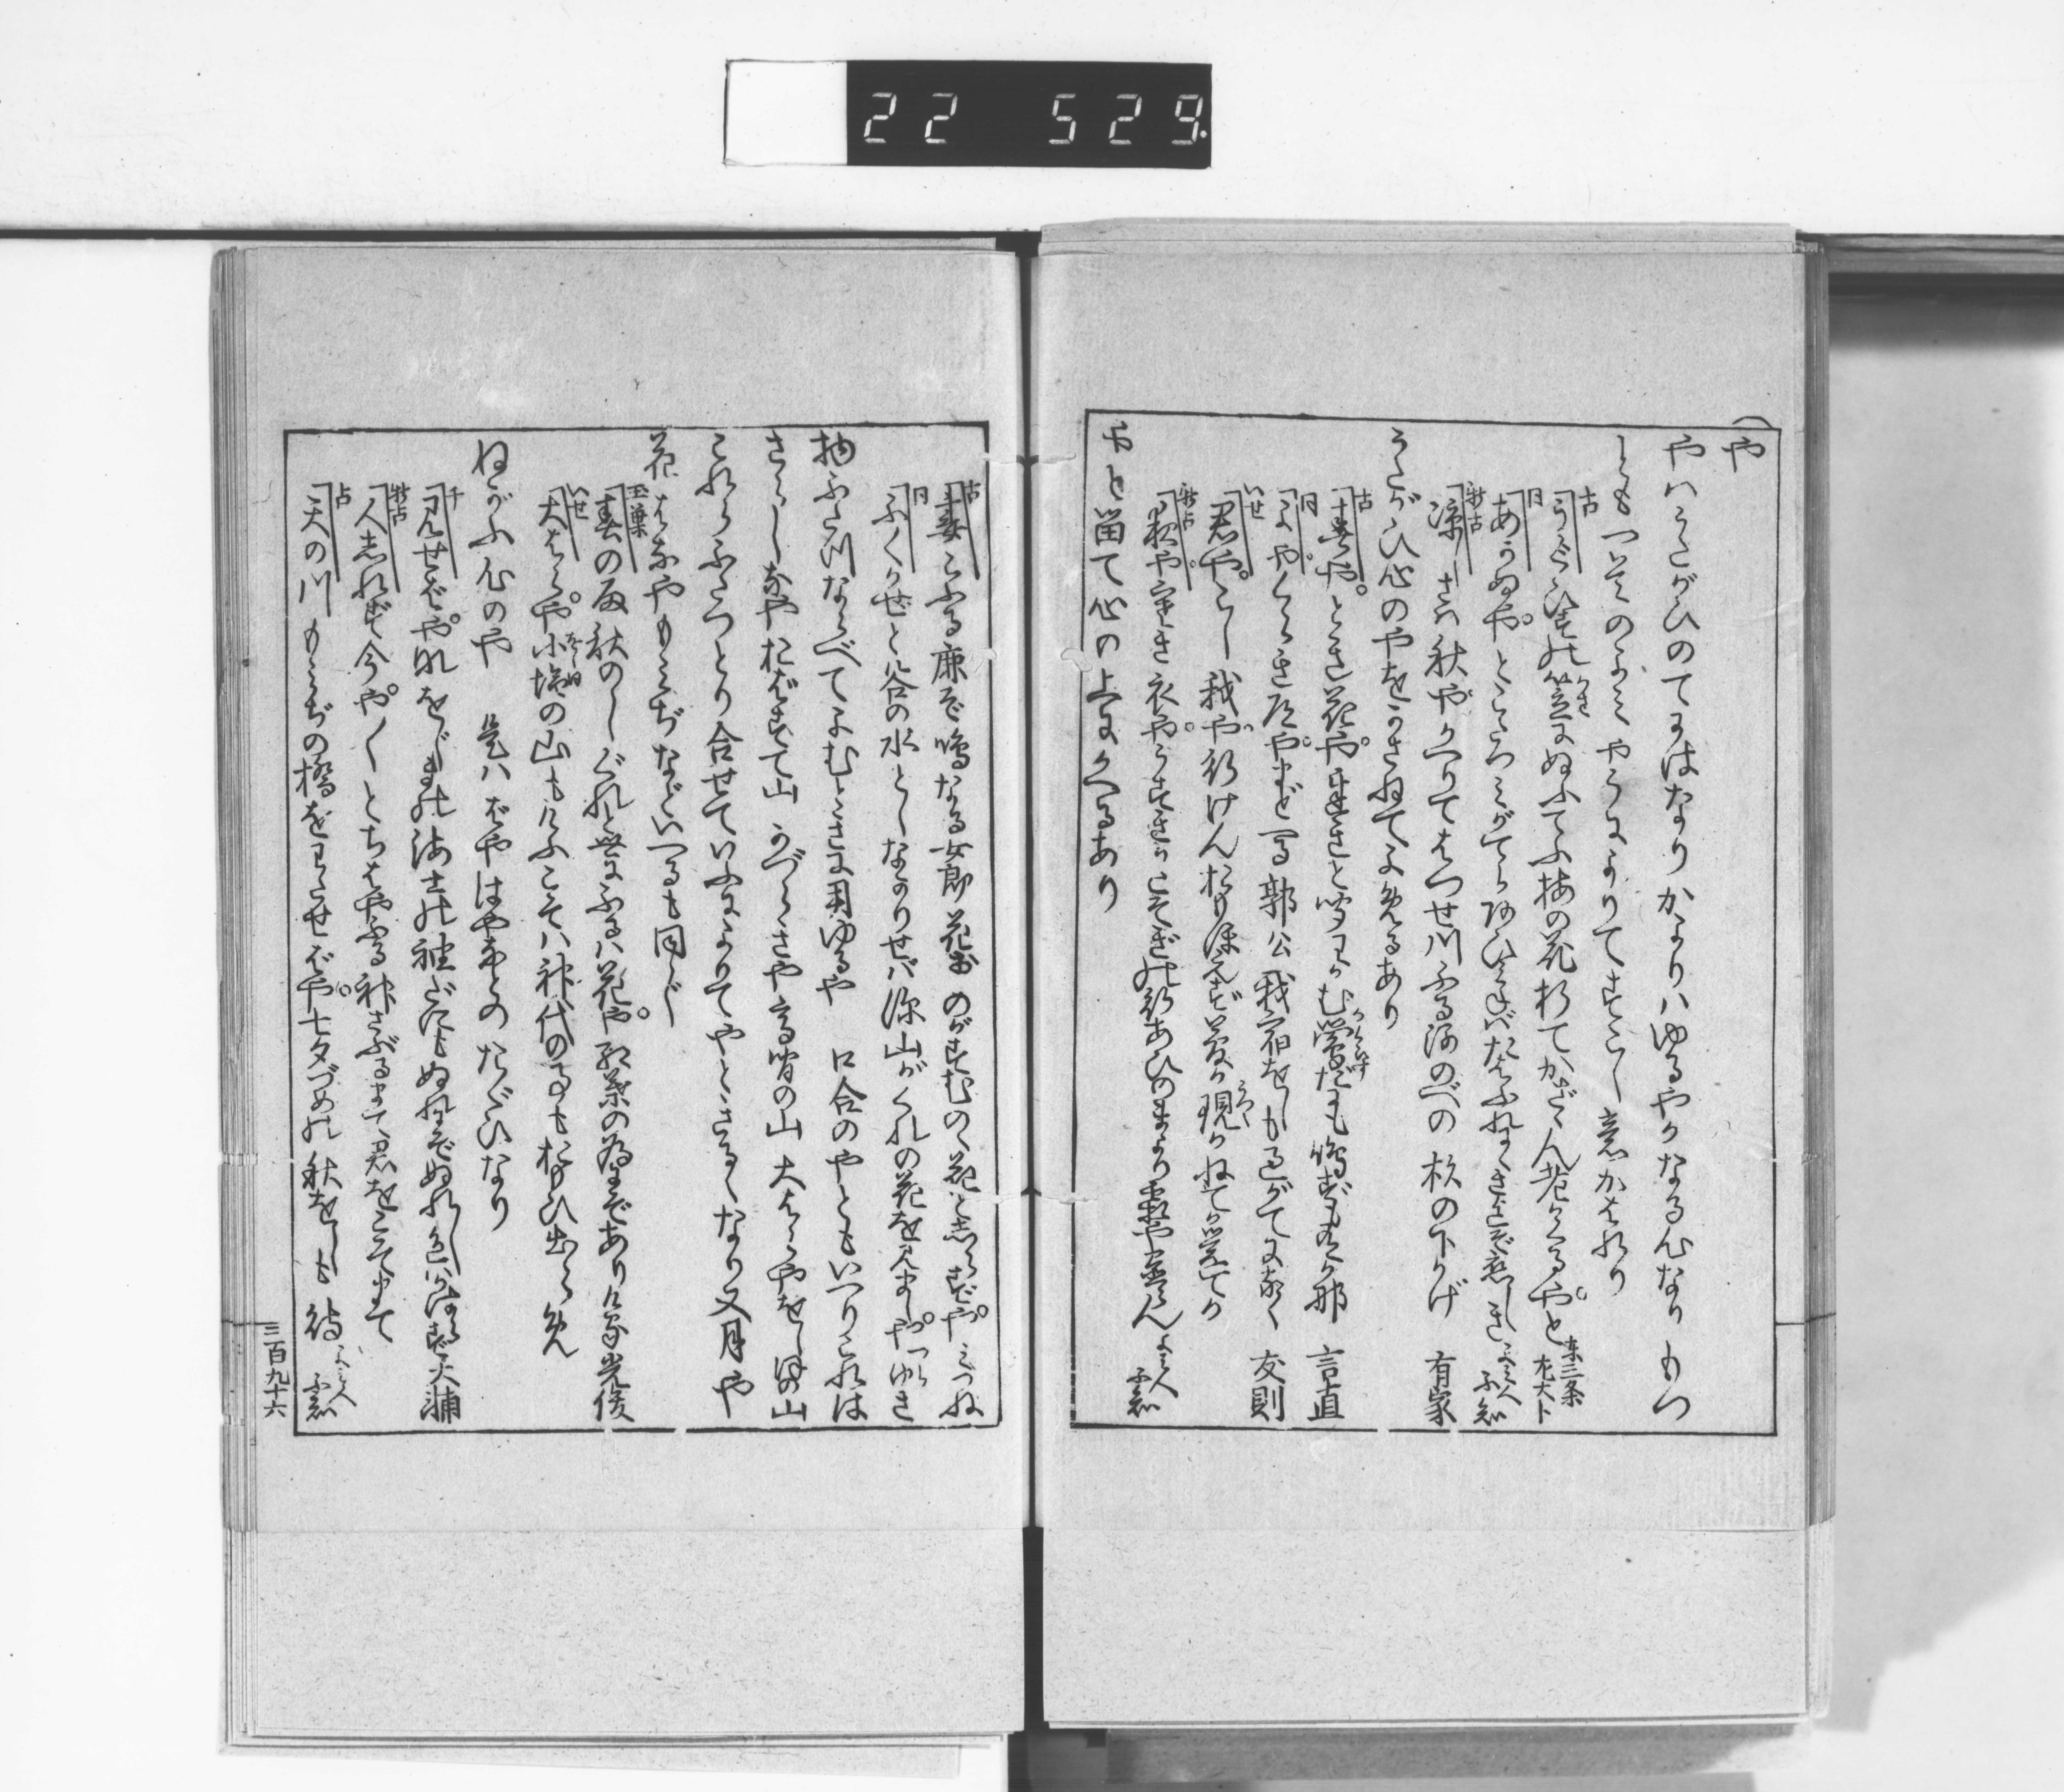 22 529.
や
やハうたがひのてにはなり かよりハゆるやかなる心なり もつ
とも一首のよみやうによりてすこし意かはれり
古 うぐひすの笠にぬふてふ梅の花折てかざゝん老かくるやと 東三条左大ト
同 あかぬやとこゝろみがてら あひみねばたはふれにくきまで恋しき よみ人不知
新古 涼しさハ秋やかへりてはつせ川ふる河のべの杉の下かげ 有家
うたがひ心のやをかさねてよめるあり
古 春やとき花やおそきと聞わかむ鶯だにも鳴ずも有か那 言直
同 よやくらき道やまどへる郭公我宿をしも過がてに鳴く 友則
いせ 君やこし我や行けんおもほえず夢か現かねてか覚てか
新古 夜や寒き衣やうすきかたそぎの行あひのまより霜や置らん よみ人不知
やと留て心の上にかへるあり
古 妻こふる鹿ぞ鳴なる女郎花おのがすむのゝ花と志らずや みつね
同 ふく風と谷の水としなかりせバ深山がくれの花を見ましや つらゆき
抽ふたつならべてよむときに用ゆるや 口合のやともいへりこれは
さらしなやおばすて山 かづらきや高間の山 大はらやをしほの山
これらふたつとり合せていふによりてやときるゝなり 又月や
花 はなやもみぢなどいへるも同じ
玉葉 春の雨秋のしぐれと世にふるハ花や紅葉の為にぞありける 光俊
いせ 大はらや小塩の山もけふこそハ神代の事もおもひ出らめ
ねがふ心のや 是ハばやはや年とのたぐひなり
千 見せばやなをじまの海士の袖だにもぬれにぞぬれし色ハかはらず 大輔
新古 人志れず今や〱とちはやふる神さぶるまで君をこそまて
古 天の川もみぢの橋をわたせばや七夕づめの秋をしも待 よみ人不知
三百九十六